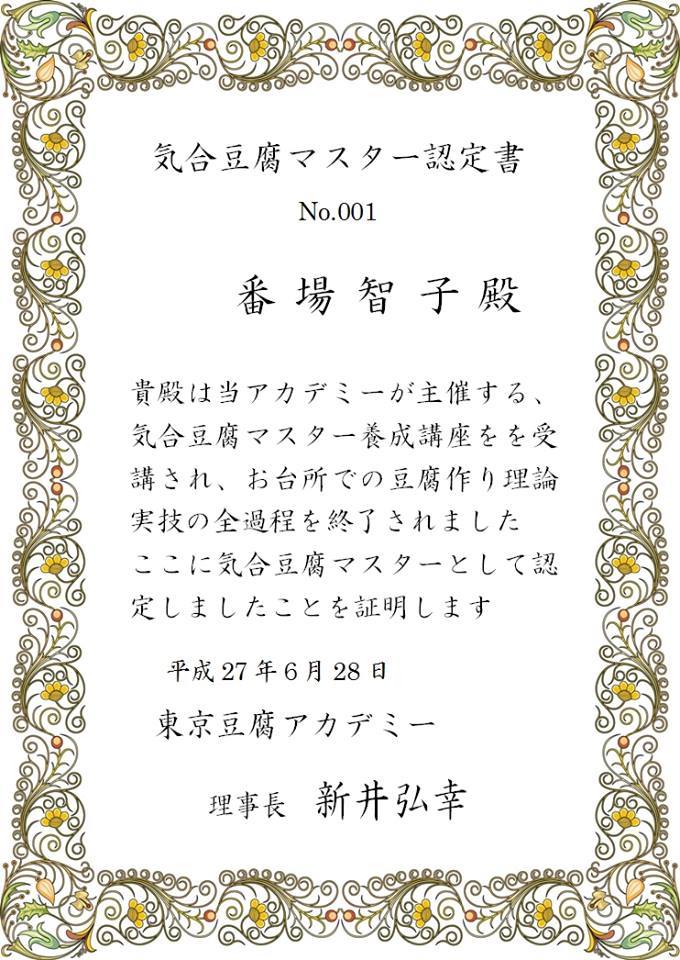 気合豆腐マスター認定書
No.001
番場智子殿
貴殿は当アカデミーが主催する、
気合豆腐マスター養成講座をを受
講され、お台所での豆腐作り理論
実技の全過程を終了されました
ここに気合豆腐マスターとして認
定しましたことを証明します
平成27年6月28日
東京豆腐アカデミー
理事長 新井弘幸